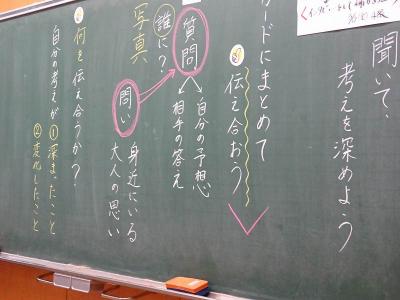 聞いて、
考えを深めよう
カードにまとめて
伝え合おう
質問
自分の予想
相手の答え
誰に?
写真
問い
身近にいる
大人の思い
何を伝え合うか?
自分の考えが①深まったこと
②変化したこと